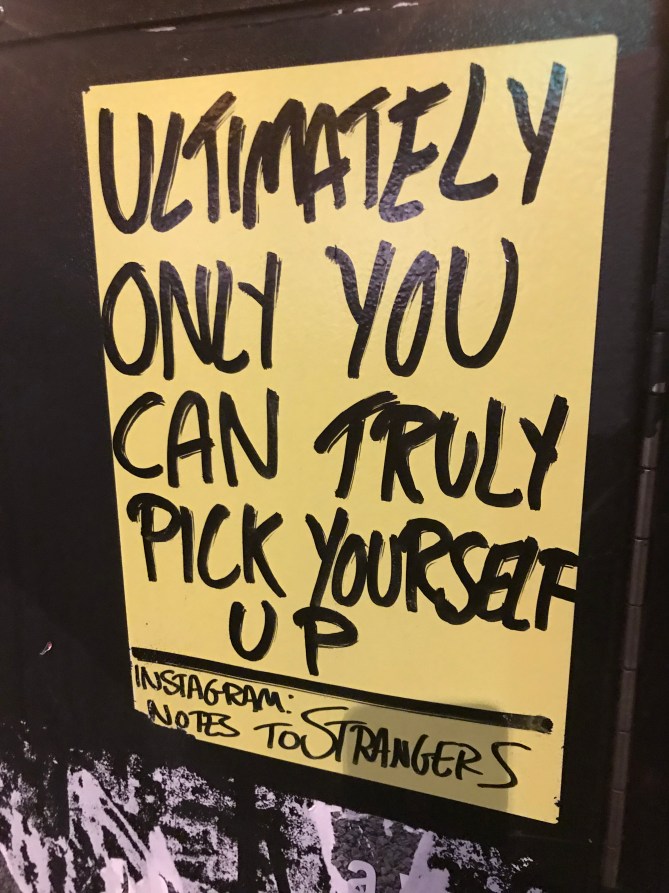 ULTIMATELY
ONLY YOU
CAN TRULY
PICK YOURSELF
UP
INSTAGRAM:
NOTES TO STRANGERS
a